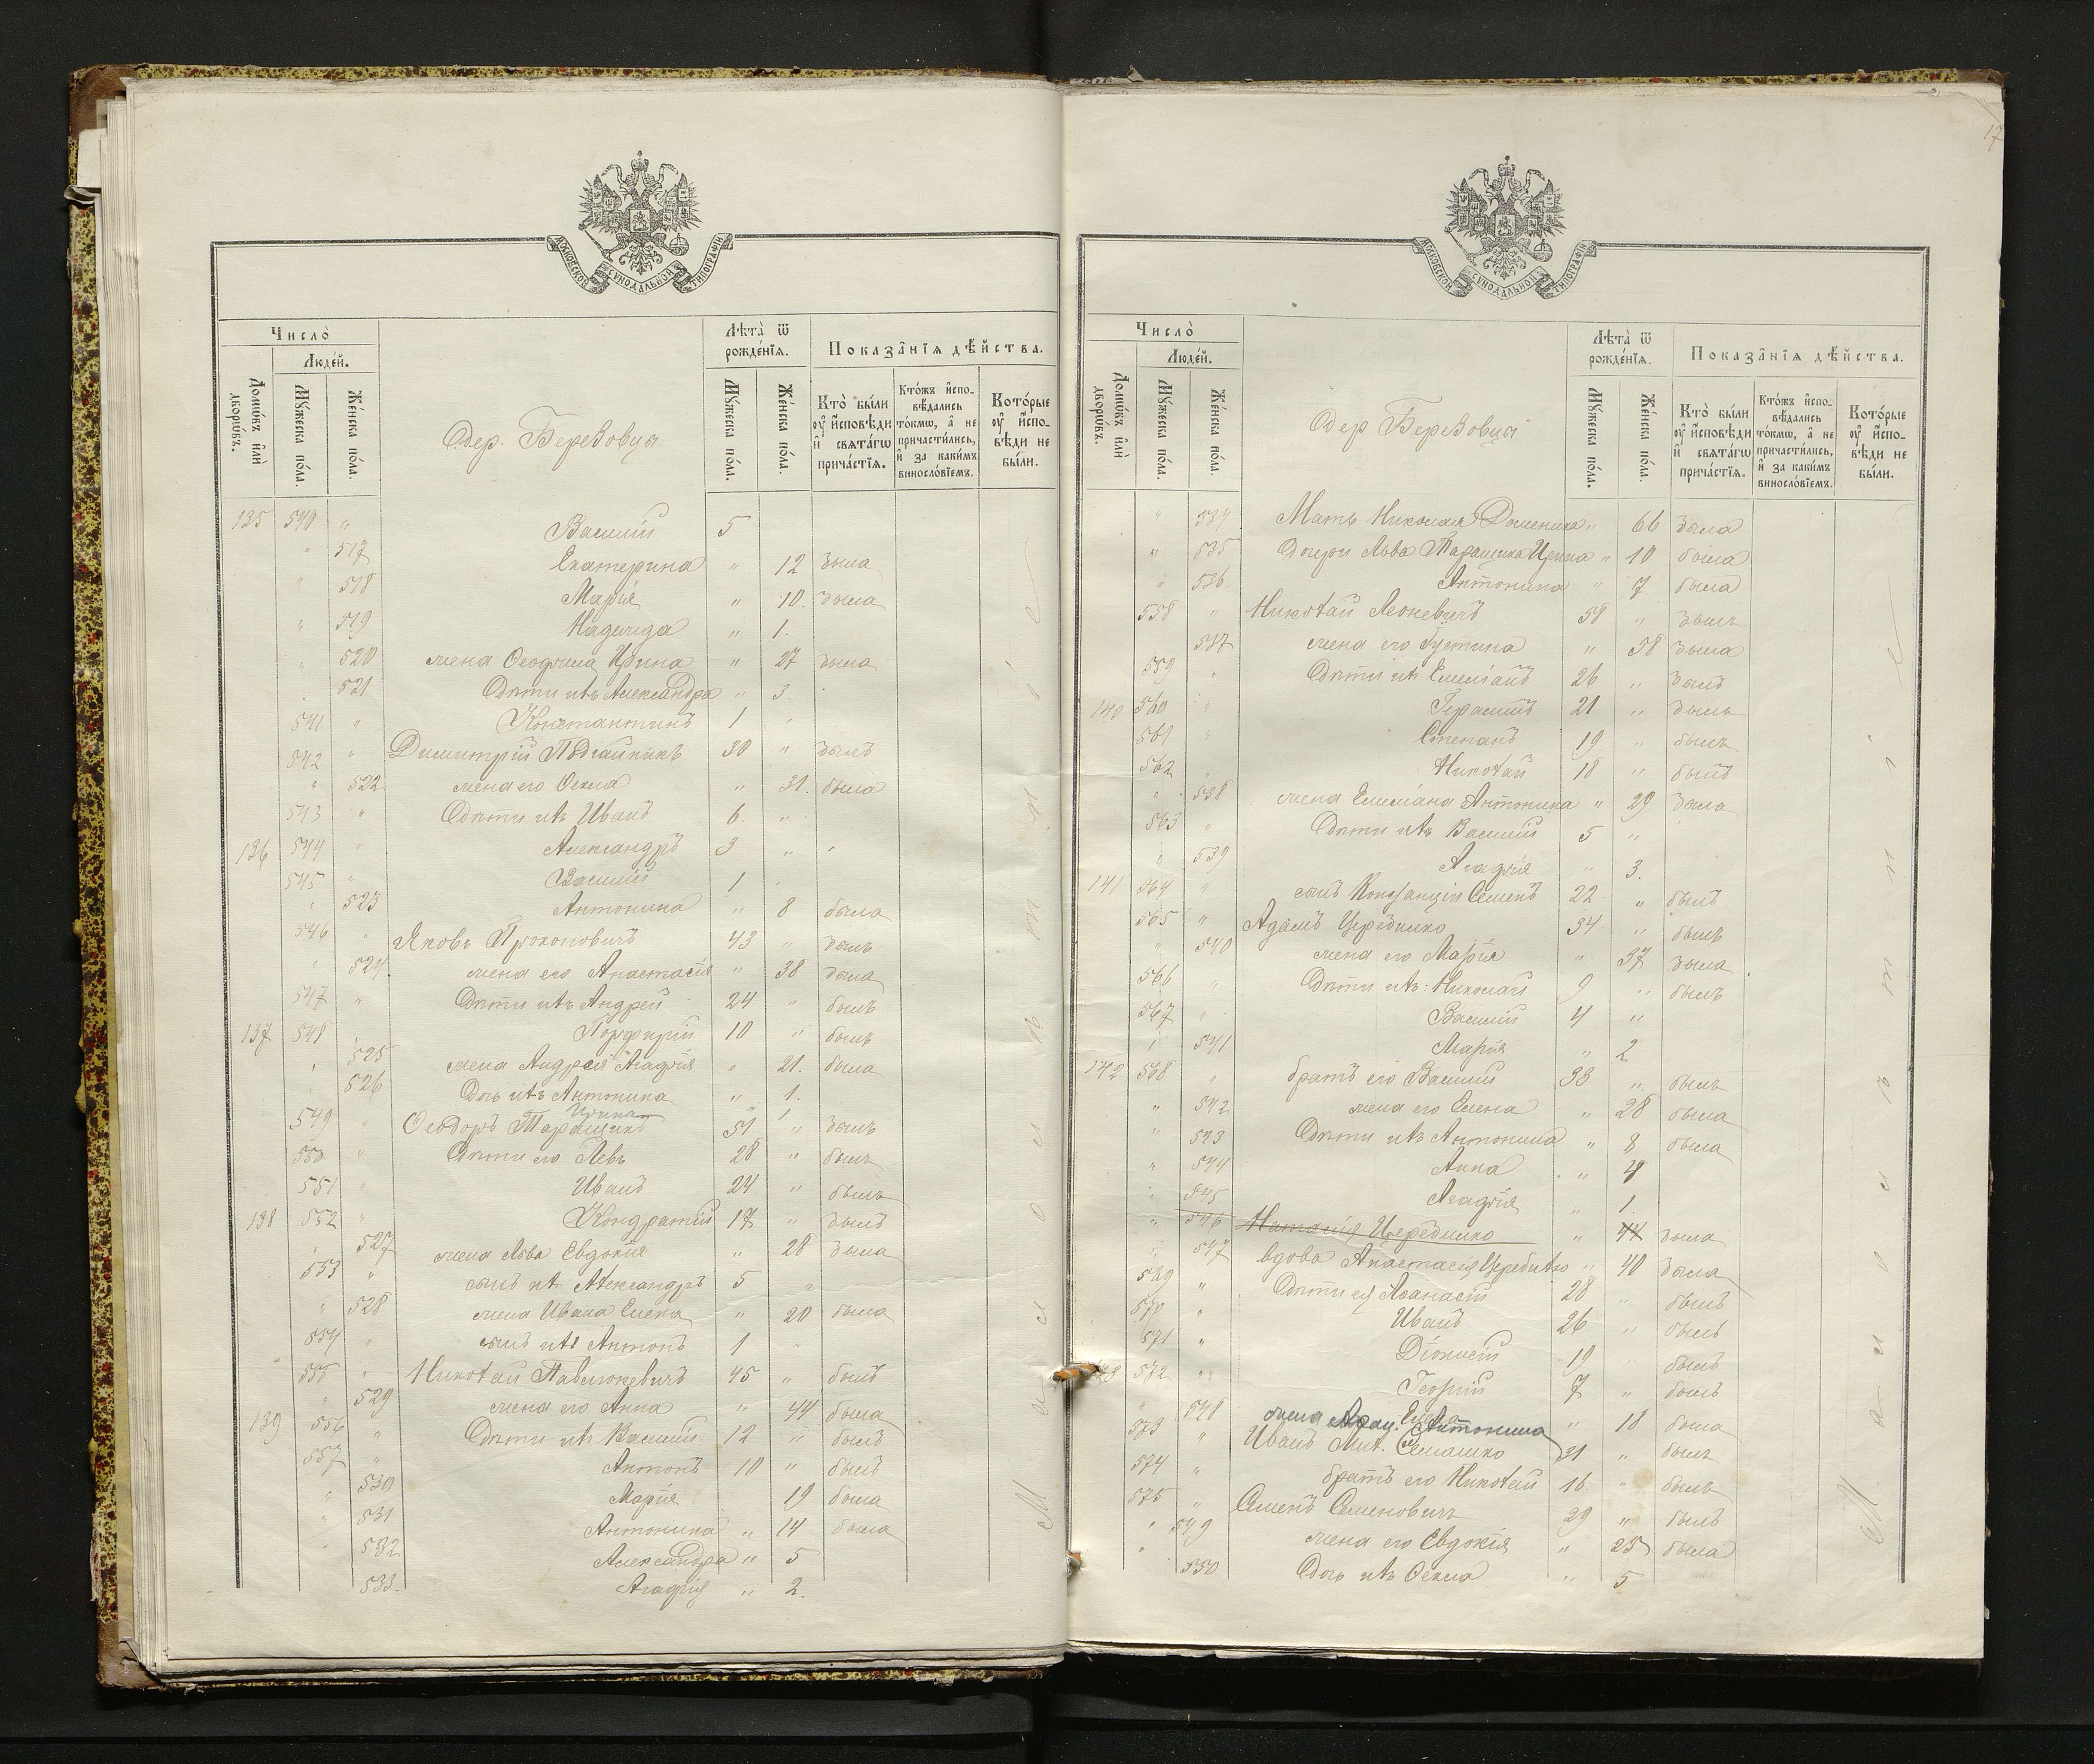 МОСКОВСКОЙ СѴНОДАЛЬНОЙ ТИПОГРАФІИ
Число̀
Людей.
Домѡвъ и҆лѝ дворѡвъ.
Мꙋжеска по́ла.
Же́нска по́ла.
Дер. Березовцы
Лѣта̀ ѿ рожде́нїѧ.
Мꙋжеска по́ла.
Же́нска по́ла.
Показа̑нїѧ дѣйства.
Кто̀ бы́ли ᲂу҆ и҆сповѣди и҆ свѧта́гѡ прича́стїѧ.
Кто́жъ и҆сповѣдались то́кмѡ, а҆ не причасти́лись, и҆ за каки́мъ винослови́емъ.
Кото́рые ᲂу҆ и҆сповѣди не бы́ли.
135 540 " Василій 5
" 517 Екатерина " 12 была
" 518 Марія " 10. была
" 519 Надежда " 1.
" 520 жена Ирина " 27 была
521 Дѣти ихъ Александра " 3.
541 " Константинъ 1 "
542 " Димитрій 30 " былъ
" 522 жена его Ѳекла " 31. была
543 " Дѣти ихъ Иванъ 6. "
136 544 " Александръ 3 "
545 " Василій 1
" 523 Антонина " 8 была
546 " Яковъ Прокоповичъ 43 " былъ
" 524. жена его Анастасія " 38 была
547 " Дѣти ихъ Андрей 24 " былъ
137 548 Порфирій 10 " былъ
" 525 жена Андрея Агафія " 21. была
526 Дочь ихъ Антонина " 1.
Ирина " 1
549 " Ѳеодоръ Таращикъ 51 " былъ
550 " Дѣти его Левъ 28 " былъ
551 " Иванъ 24 " былъ
138 552 " Кондратій 17 " былъ
" 527 жена Льва Евдокія " 28 была
553 " сынъ ихъ Александръ 5 "
" 528 жена Ивана Елена " 20 была
554 " сынъ ихъ Антонъ 1
555 " Николай Павлюкевичъ 45 " былъ
" 529 жена его Анна " 44 была
139 556 " Дѣти ихъ Василій 12 " былъ
557 " Антонъ 10 " былъ
" 530 Марія 19 была
" 531 Антонина " 14 была
" 532 Александра " 5
533. Агафія " 2.
17
МОСКОВСКОЙ СѴНОДАЛЬНОЙ ТИПОГРАФІИ
Число̀
Людей.
Домѡвъ и҆лѝ дворѡвъ.
Мꙋжеска по́ла.
Же́нска по́ла.
Дер Березовцы
Лѣта̀ ѿ рожде́нїѧ.
Мꙋжеска по́ла.
Же́нска по́ла.
Показа̑нїѧ дѣйства.
Кто̀ бы́ли ᲂу҆ и҆сповѣди и҆ свѧта́гѡ прича́стїѧ.
Кто́жъ и҆сповѣдались то́кмѡ, а҆ не причасти́лись, и҆ за каки́мъ винослови́емъ.
Кото́рые ᲂу҆ и҆сповѣди не бы́ли.
" 534 Мать Николая Доменика " 66 была
" 535 Дочери Льва Таращика Ирина " 10 была
" 536 Антонина " 7 была
558 " Николай Леоневичъ 58 " былъ
537 жена его Густина " 58 была
559 " Дѣти ихъ Емеліанъ 26 " былъ
140 560 " Герасимъ 21 " былъ
561 " Степанъ 19 " былъ
562 " Николай 18 " былъ
" 538 жена Емеліана Антонина " 29 была
563 " Дѣти ихъ Василій 5 "
" 539 Агафія " 3.
141 564 " сынъ Семенъ 22 " былъ
565 " Адамъ Церебилко 34 " былъ
" 540 жена его Марія " 37 была
566 " Дѣти ихъ: Николай 9 " былъ
567 " Василій 4 "
541 Марія " 2
142 568 " братъ его Василій 33 " былъ
" 542 жена его Елена " 28 была
" 543 Дѣти ихъ Антонина " 8 была
" 544 Анна " 4
" 545 Агафія " 1.
" 546 Наталія Церебилко " 44 была
" 547 вдова Анастасія Церебилко " 40 была
569 " Дѣти ея Аѳанасій 28 " былъ
570 " Иванъ 26 " былъ
571 " Діонисій 19 " былъ
572 " Георгій 7 " былъ
548 жена Афан. Антонина " 18 была
573 " Иванъ Мит. Семашко 21 " былъ
574 " братъ его Николай 16 " былъ
575 " Семенъ Семеновичъ 29 " былъ
" 549 жена его Евдокія " 25 была
" 550 Дочь ихъ Ѳекла " 5